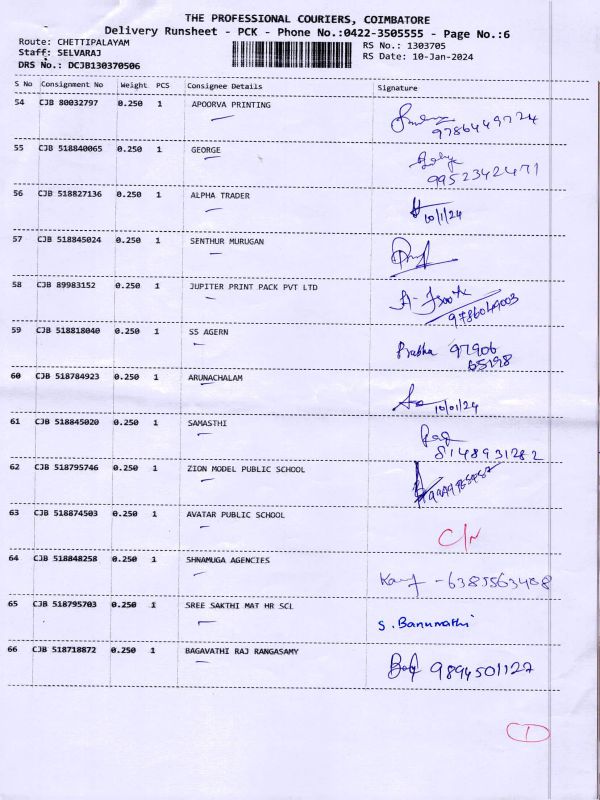 THE PROFESSIONAL COURIERS, COIMBATORE
Delivery Runsheet - PCK - Phone No.:0422-3505555 - Page No.:6
Route: CHETTIPALAYAM RS No.: 1303705
Staff: SELVARAJ RS Date: 10-Jan-2024
DRS No.: DCJB130370506
S No Consignment No Weight PCS Consignee Details Signature
54 CJB 80032797 0.250 1 APOORVA PRINTING
9786449724
55 CJB 518840065 0.250 1 GEORGE
9952342471
56 CJB 518827136 0.250 1 ALPHA TRADER
10/1/24
57 CJB 518845024 0.250 1 SENTHUR MURUGAN
58 CJB 89983152 0.250 1 JUPITER PRINT PACK PVT LTD
9786049003
59 CJB 518818040 0.250 1 SS AGERN
Prabha 97906
65198
60 CJB 518784923 0.250 1 ARUNACHALAM
10/01/24
61 CJB 518845020 0.250 1 SAMASTHI
8148931282
62 CJB 518795746 0.250 1 ZION MODEL PUBLIC SCHOOL
63 CJB 518874503 0.250 1 AVATAR PUBLIC SCHOOL
C/N
64 CJB 518848258 0.250 1 SHNAMUGA AGENCIES
-6385563408
65 CJB 518795703 0.250 1 SREE SAKTHI MAT HR SCL
S. Banumathi
66 CJB 518718872 0.250 1 BAGAVATHI RAJ RANGASAMY
9894501127
1